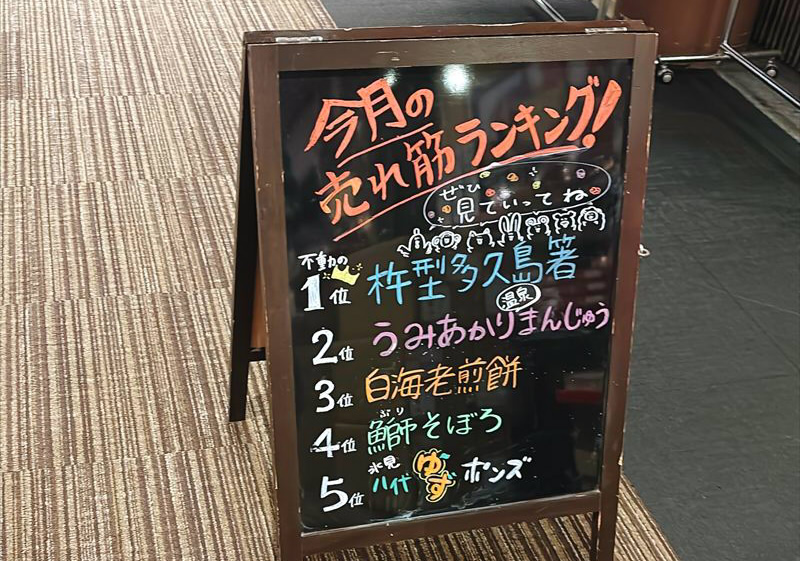 今月の
売れ筋ランキング!
ぜひ
見ていってね
不動の
1位 杵型多久島箸
温泉
2位 うみあかりまんじゅう
3位 白海老煎餅
ぶり
4位 鰤そぼろ
氷見
5位 八代ゆずポンズ